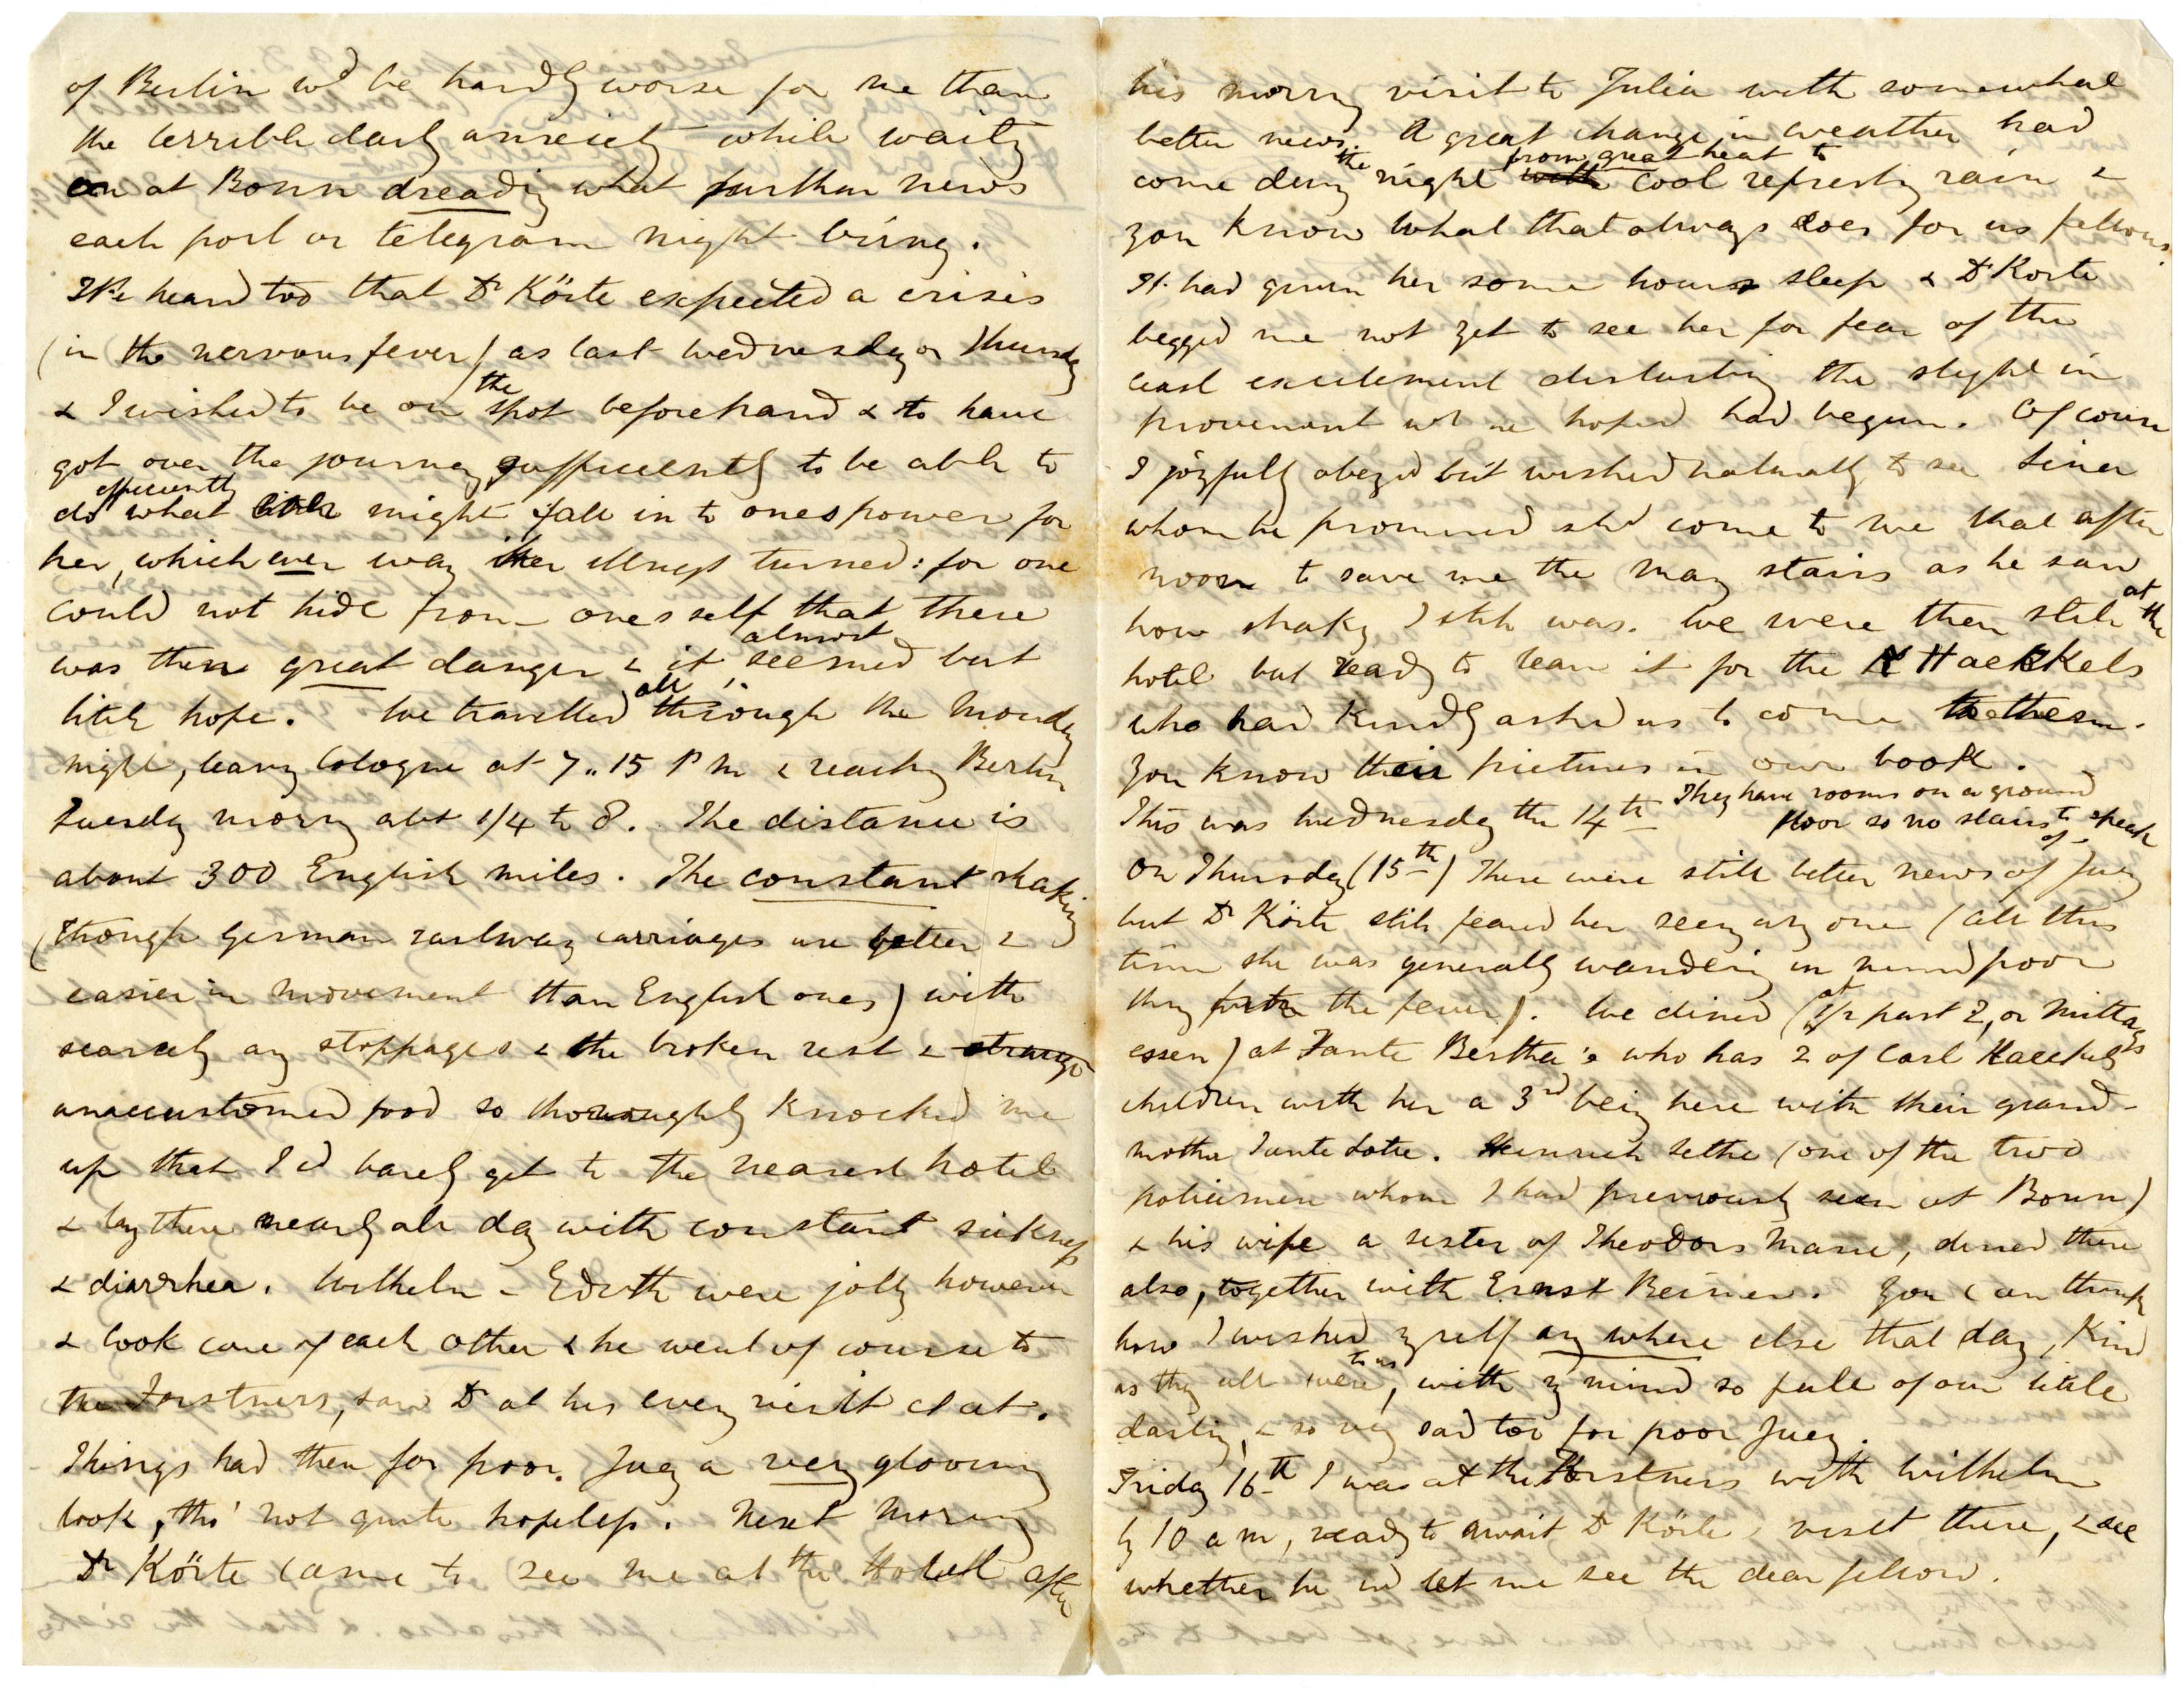 of Berlin wd be hardly worse for me than
the terrible daily anxiety while waiting
on at Bonn dreading what further news
each post or telegram might bring.
We heard too that Dr Körte expected a crisis
(in the nervous fever) as last Wednesday or Thursday
& I wished to be on the spot beforehand & to have
got over the journey sufficiently to be able to
do efficiently what little might fall in to ones power for
her, which ever way her illness turned: for one
could not hide from oneself that there
was then great danger & it almost seemed but
little hope. We travelled all through the Monday
night, leaving Cologne at 7..15 P M & reaching Berlin
Tuesday morng abt 1/4 to 8. The distance is
about 300 English miles. The constant shaking
(though German railway carriages are better &
easier in movement than English ones) with
scarcely any stoppages & the broken rest & strange
unaccustomed food so thoroughly knocked me
up that I cd barely get to the nearest hotel
& lay there nearly all day with constant sickness
& diarrhea. Wilhelm & Edith were jolly however
& took care of each other & he went of course to
the Forstners, saw Dr at his eveng visit &c &c.
Things had then for poor Juey a very gloomy
look, tho' not quite hopeless. Next Morning
Dr Körte came to see me at the Hotel after
his morng visit to Julia with somewhat
better news. A great change in weather had
come during the night from great heat to cool refreshg rain &
you know what that always does for us fellows.
It had given her some hours sleep & Dr Körte
begged me not yet to see her for fear of the
least excitement disturbing the slight im
provement wh we hoped had begun. Of course
I joyfully obeyed but wished naturally to see Lina
whom he promised shd come to me that after
noon to save me the many stairs as he saw
how shaky I still was. We were then still at the
hotel but ready to leave it for the Haeckels
who had kindly asked us to come to them.
You know their pictures in our book.
This was Wednesday the 14th They have rooms on a ground
floor so no stairs to speak of
On Thursday (15th) There were still better news of Juey
but Dr Körte still feared her seeing any one (all this
time she was generally wandering in mind poor
thing with the fever). We dined (at 1/2 past 2, or Mittags
essen) at Tante Bertha's who has 2 of Carl Haeckels
children with her a 3rd being here with their grand-
mother Tante Lotte. Heinrich Sethe (one of the two
policemen whom I had previously seen at Bonn)
& his wife a sister of Theodors Marie, dined there
also, together with Ernst Reimer. You can think
how I wished myself any where else that day, kind
as they all were to us, with my mind so full of our little
darling, & so very sad too for poor Juey.
Friday 16th I was at the Forstners with Wilhelm
by 10 a m, ready to await Dr Körte's visit there, & see
whether he wd let me see the dear fellow.